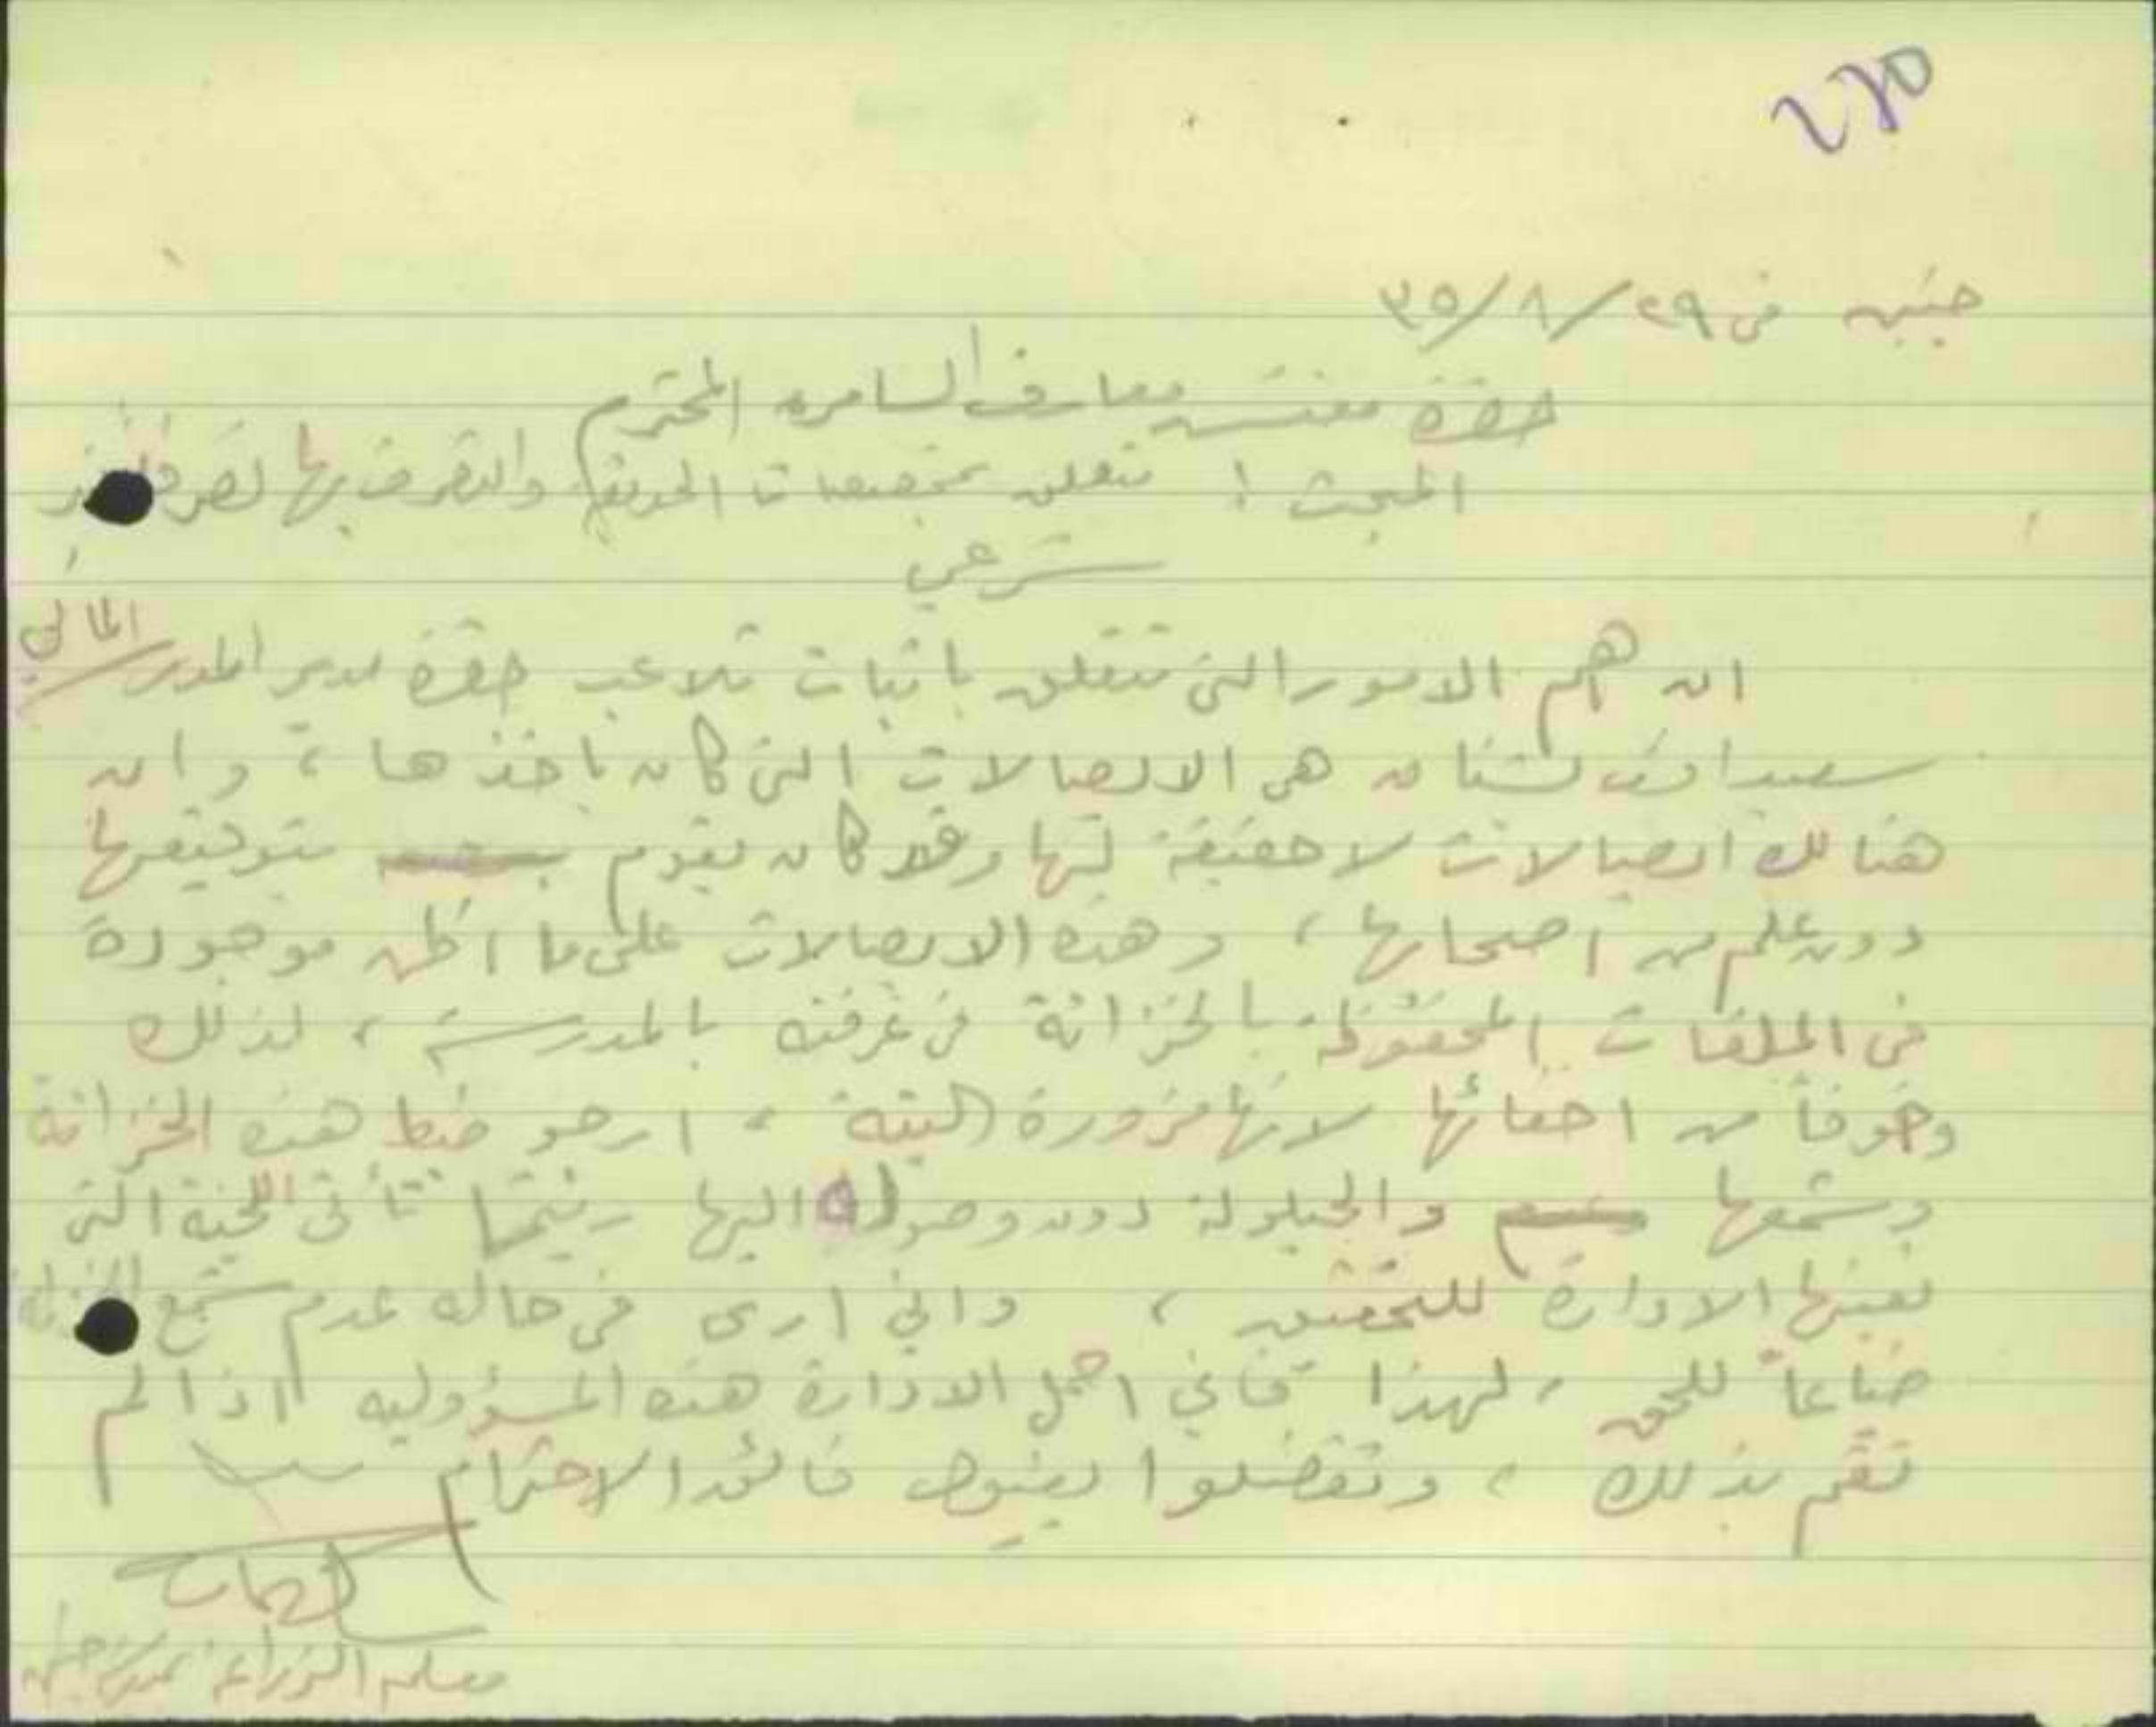 جنين في ٢٩/٨/٣٥
حضرة مفتش معارف السامره المحترم
المبحث : متعلق بمخصصات الحديقة والتصرف بها تصرف غير
شرعي
ان اهم الامور التي تتعلق باثبات تلاعب حضرة مدير المدرسة المالي
سعيد هي الايصالات التي كان ياخذها ، وان
هنالك ايصالات لا حقيقة لها وقد كان يقوم بتوقيعها
دون علم من اصحابها ، وهذه الايصالات على ما اظن موجودة
في الملفات المحفوظة بالخزانة في غرفته بالمدرسة ، لذلك
وخوفاً من اخفائها لانها مزورة البتة ، ارجو ضبط هذه الخزانة
وشمعها والحيلولة دون وصوله اليها ريثما تأتي اللجنة التي
تعينها الادارة للتحقيق ، واني ارى في حالة عدم شمع الخزانة
ضياعاً للحق ، لهذا فاني احمل الادارة هذه المسؤوليه اذا لم
تقم بذلك ، وتفضلوا بقبول فائق الاحترام
معلم الزراعة بمدرسة جنين